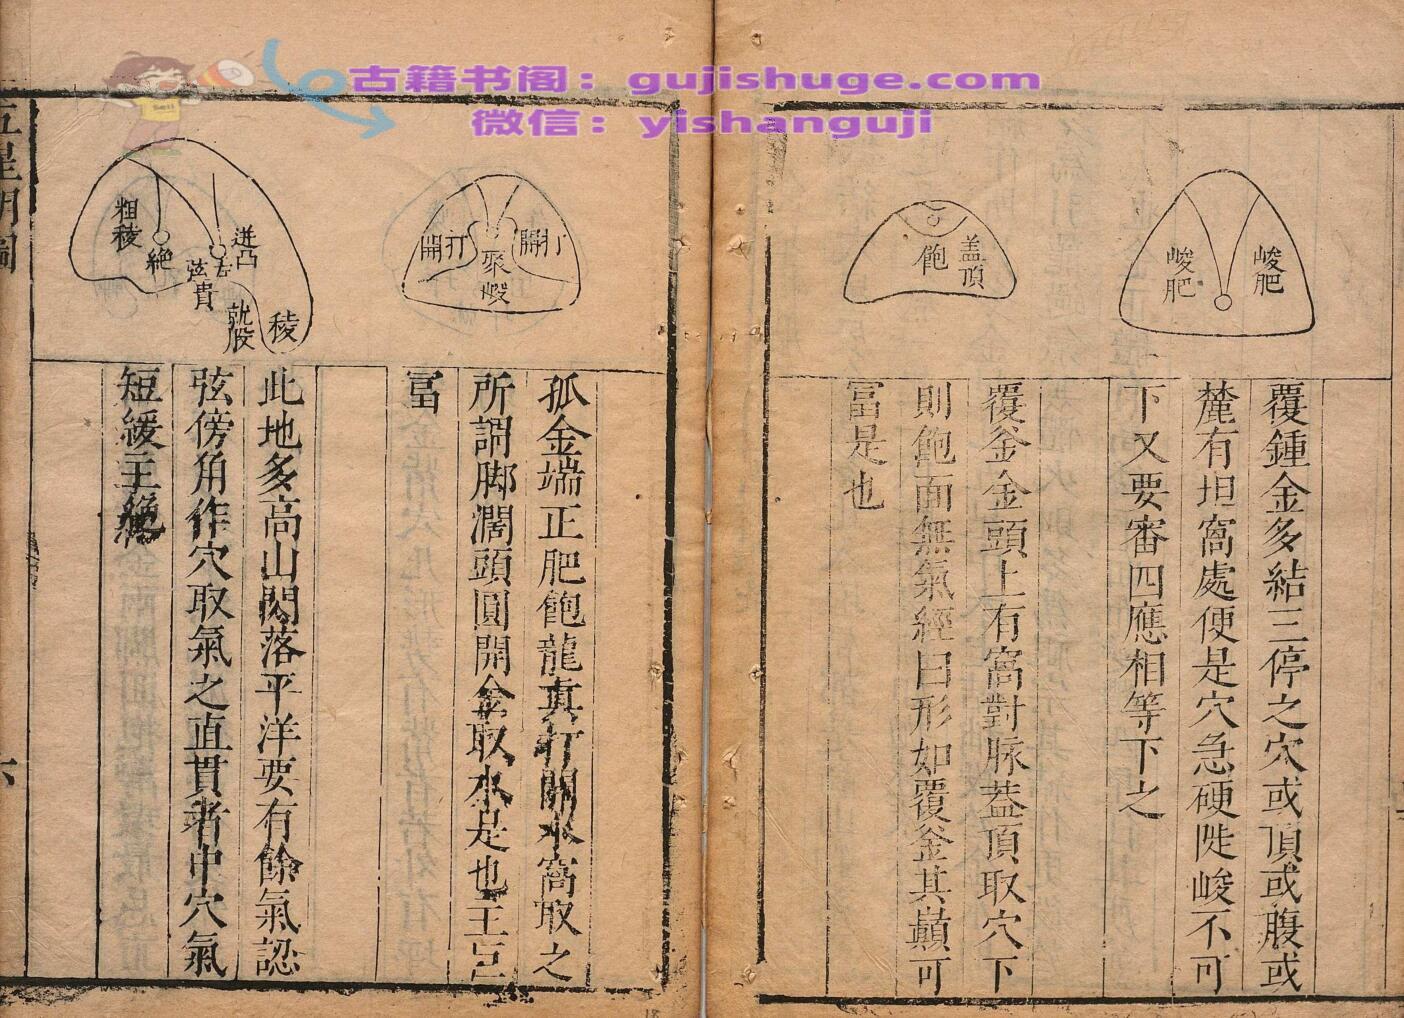 古籍书阁：gujishuge.com
微信：yishanguji
峻肥
峻肥
覆鍾金多結三停之穴或頂或腹或
麓有坦窩處便是穴急硬陡峻不可
下又要審四應相等下之
蓋頂
飽
覆釜金頭上有窩對脉蓋頂取穴下
則飽面無氣經曰形如覆釜其巔可
富是也
開打
聚
開打
孤金端正肥飽龍真打開水窩取之
所謂脚濶頭圓開金取水是也主巨
富
迸凸
稜
弦貴
就股
絕
粗稜
此地多高山閃落平洋要有餘氣認
弦傍角作穴取氣之直貫者中穴氣
短緩主絕
五星明圖
六